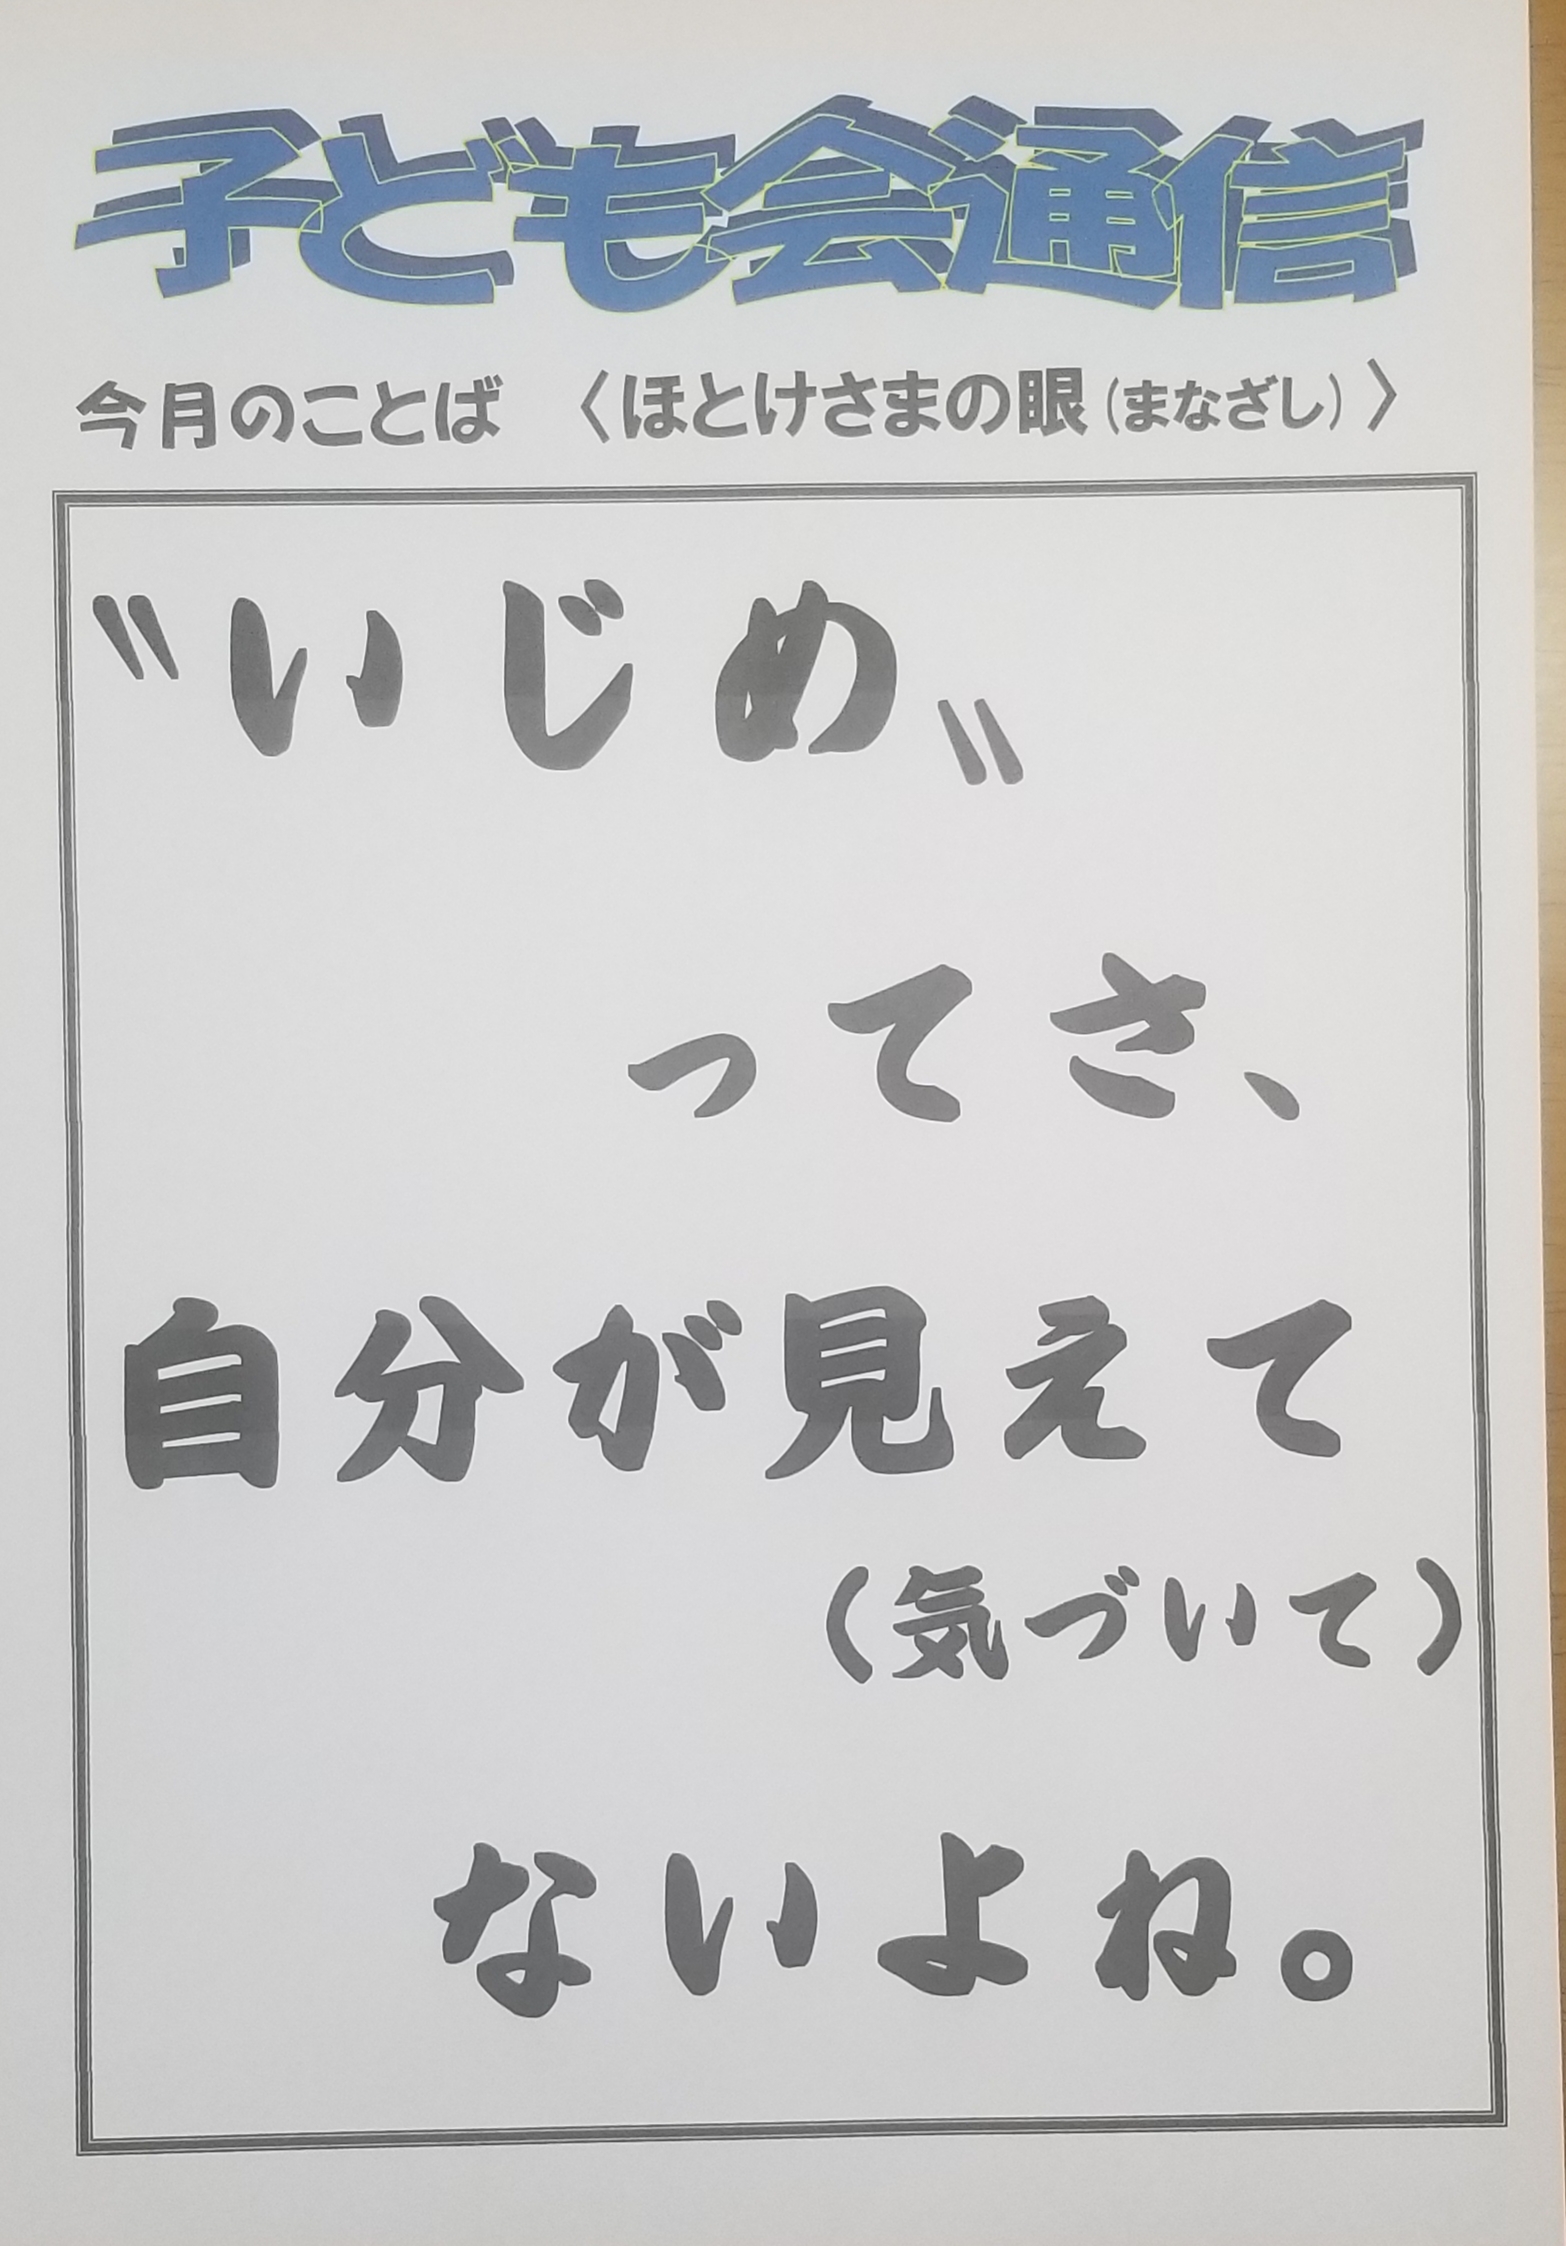 子ども会通信
今月のことば　〈ほとけさまの眼(まなざし)〉
〝いじめ〟
ってさ、
自分が見えて
(気づいて)
ないよね。